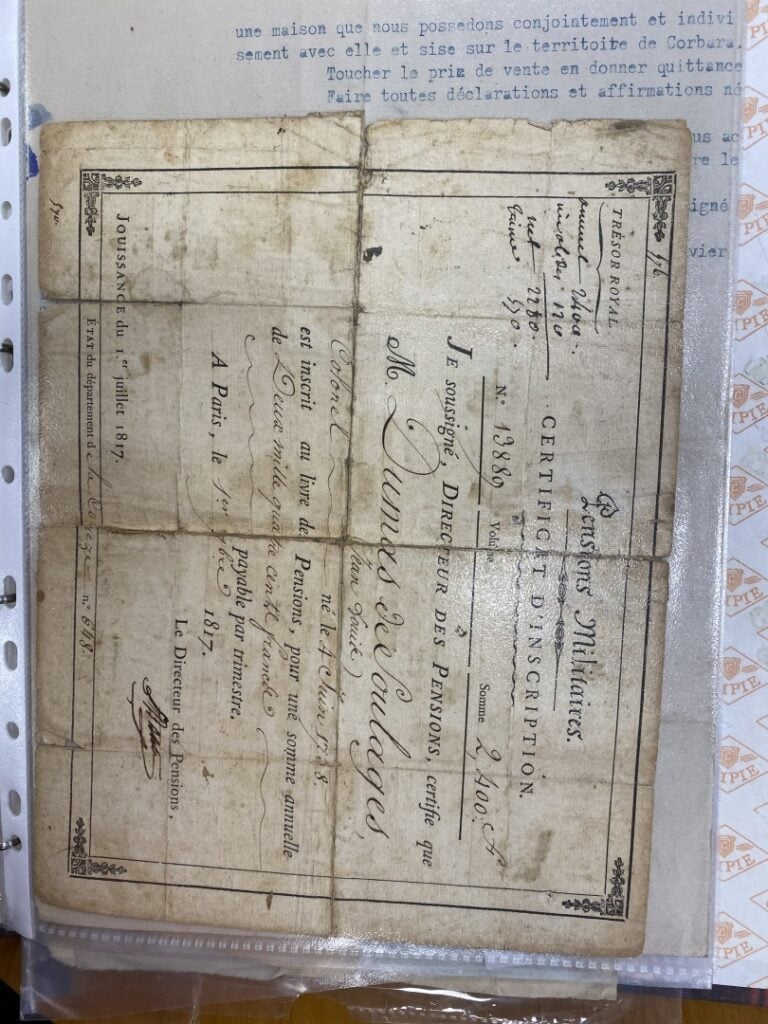 une maison que nous possedons conjointement et indivi
sement avec elle et sise sur le territoire de Corbara.
Toucher le prix de vente en donner quittance
Faire toutes déclarations et affirmations né
us ac
re le
igné
vier
576.
TRÉSOR ROYAL.
annuel 2400.
invalides 120
net 2280.
570.
Pensions Militaires.
CERTIFICAT D'INSCRIPTION.
N.º 13889 Volume Somme 2,400.
JE soussigné, DIRECTEUR DES PENSIONS, certifie que
M. Dumas de Soulages
(Jean Louis)
Colonel né le 4 Juin 1758.
est inscrit au livre de Pensions, pour une somme annuelle
de Deux mille quatre cents francs
payable par trimestre.
A Paris, le 1er 1817.
Le Directeur des Pensions,
JOUISSANCE du 1.er juillet 1817.
ÉTAT du département de la Corrèze n.º 648.
570.
PIE
IPIE